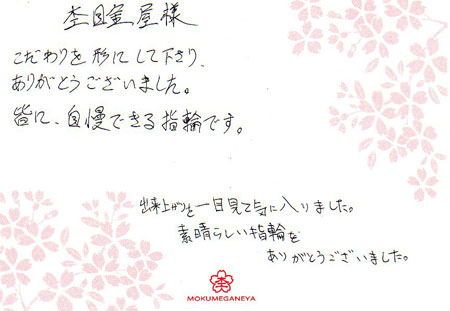 杢目金屋様
こだわりを形にして下さり、
ありがとうございました。
皆に、自慢できる指輪です。
出来上がりを一目見て気に入りました。
素晴らしい指輪を
ありがとうございました。
MOKUMEGANEYA